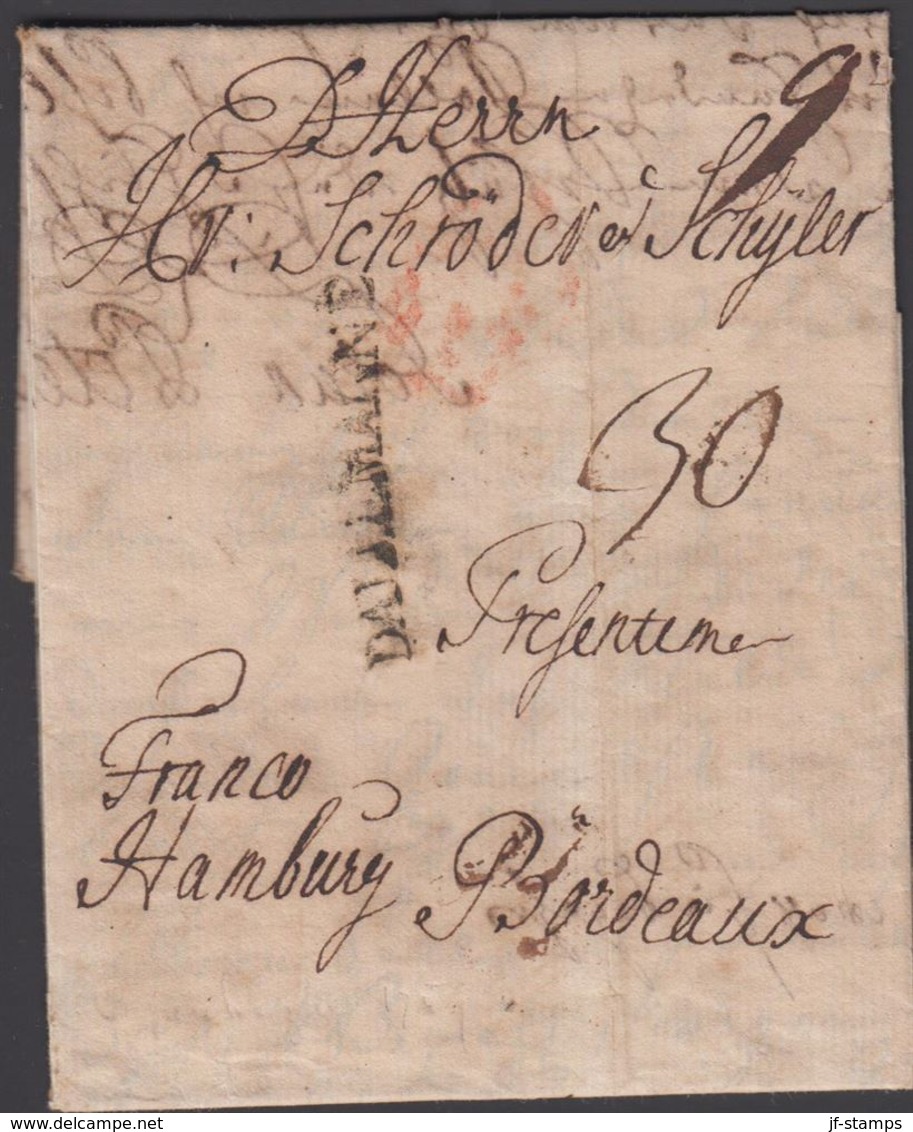 D Herrn
9
Hr: Schröder et Schÿler
DALLEMAGNE
30
Presentemen
Franco
Hamburg
Bordeaux
www.delcampe.net
jf-stamps